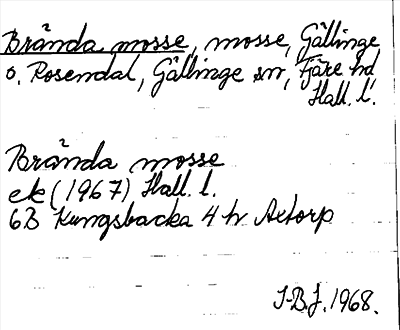 Brända mosse, mosse, Gällinge
o. Rosendal, Gällinge sn, Fjäre hd
Hall. l.
Brända mosse
ek (1967) Hall. l.
6B Kungsbacka 4 hv Axtorp
J-B.J. 1968.